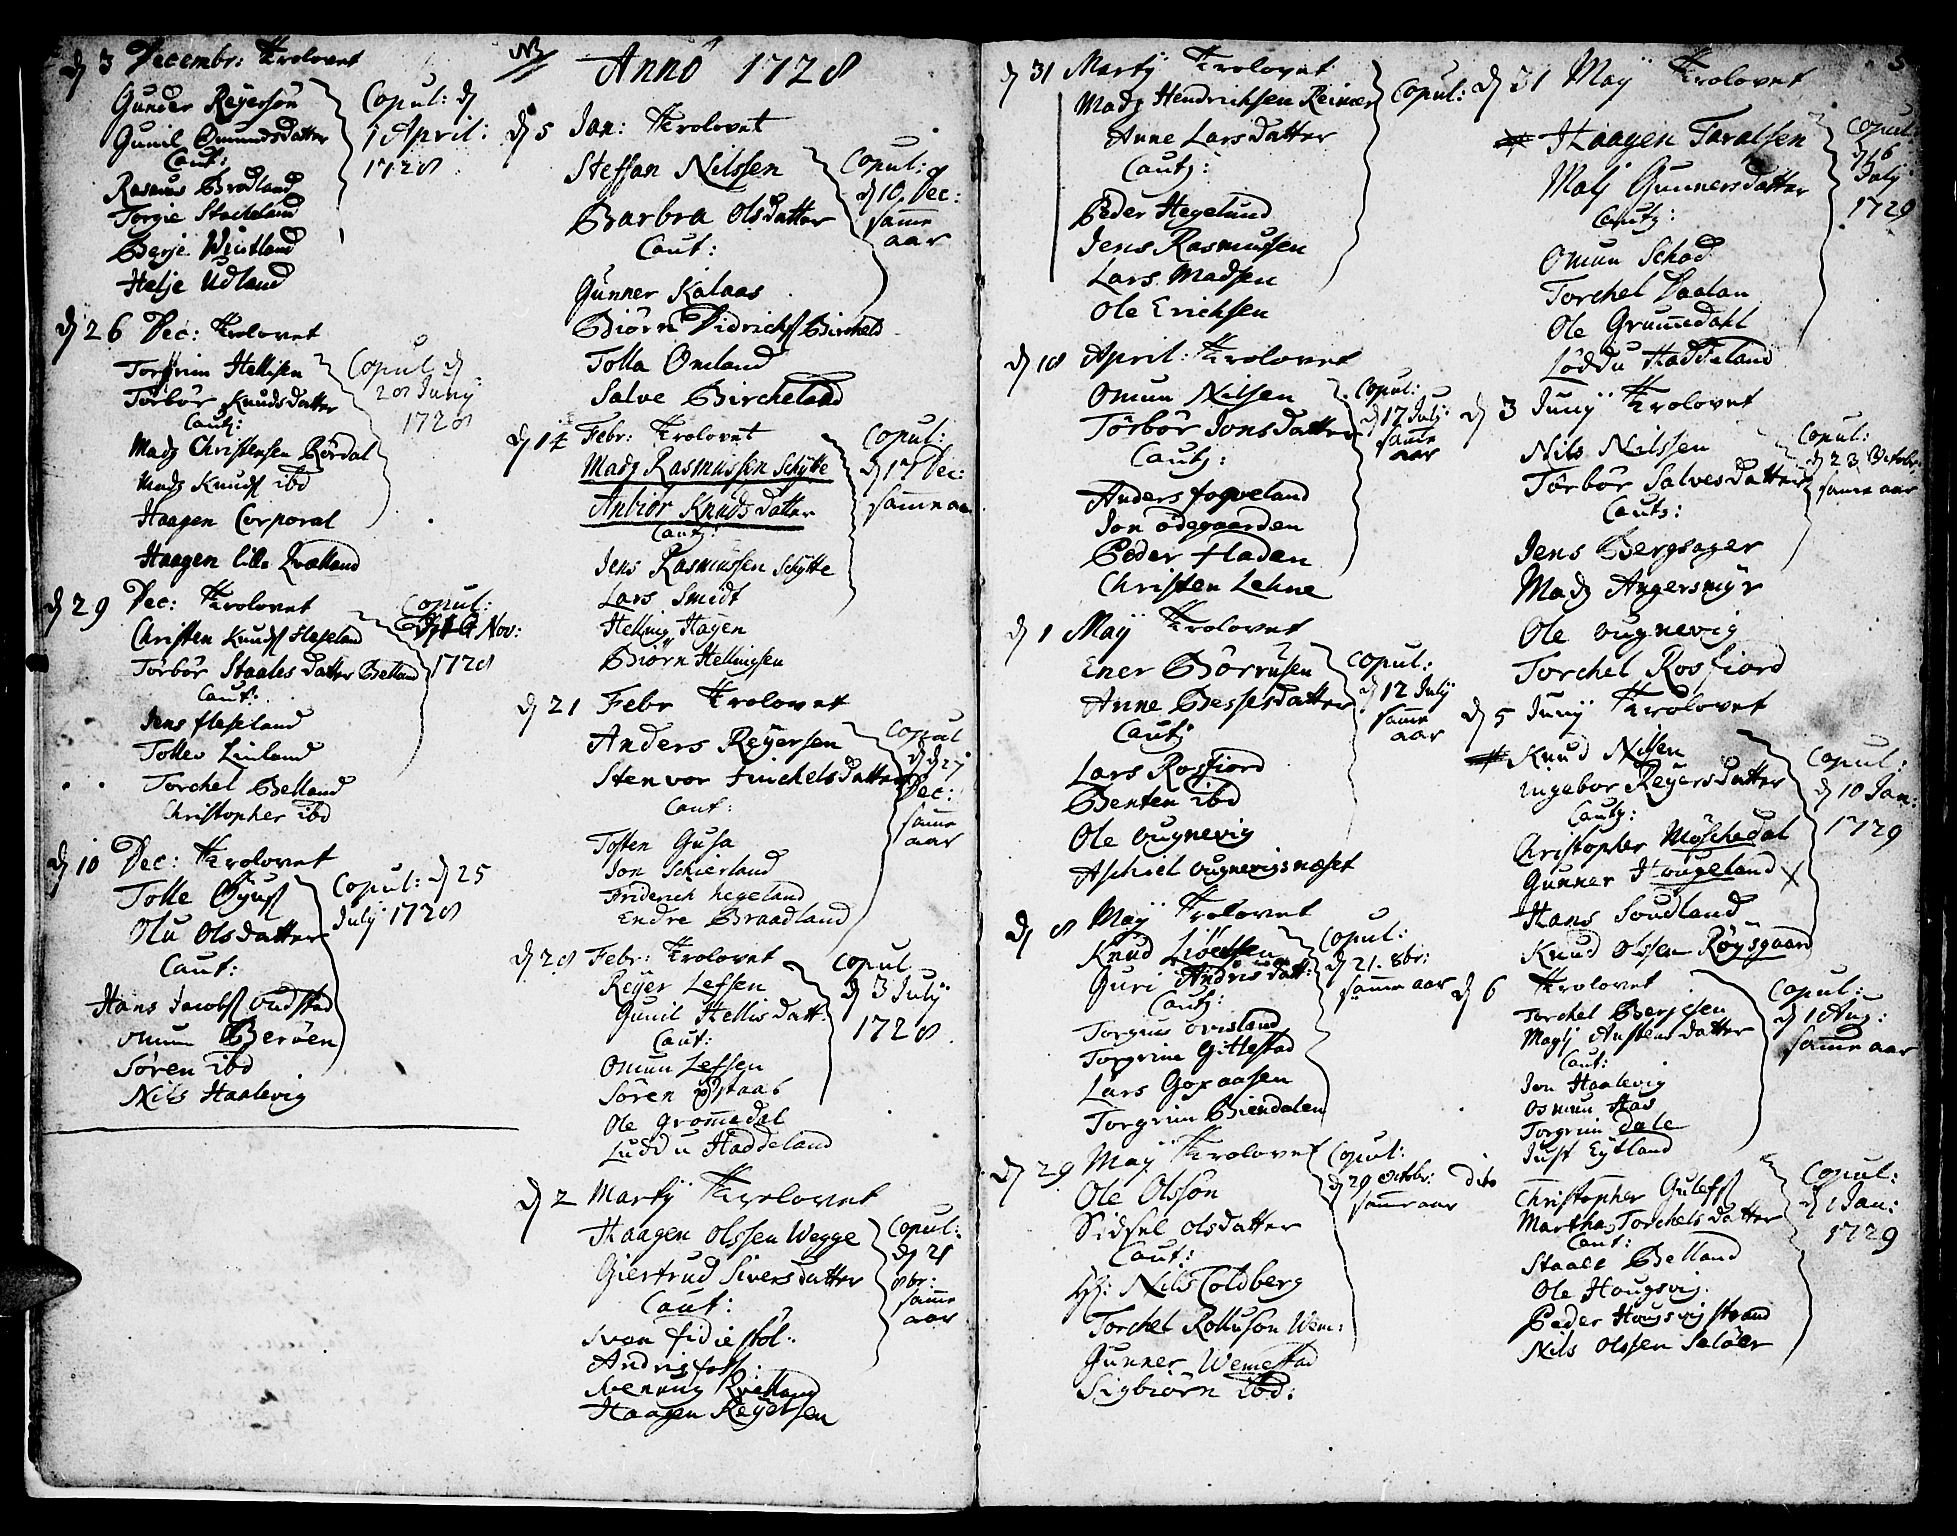 d 3 Decembr: Trolovet
Gunder Reÿersön
Gunil Omundsdatter
Caut:
Rasmus Brodland
Torgie Stackeland
Berje
Helje Udland
Copul: d
1 April:
1728
d 26 Dec: Trolovet
Torgrim Hellisen
Torbör Knudsdatter
Caut:
Mads Christensen Rördal
Mads Knuds ibd
Haagen Corporal
Haagen lille
Copul d
28 Junÿ
1728
d 29 Dec: Trolovet
Christen Knuds Fleseland
Torbör Staalesdatter Belland
Caut:
Jens fleseland
Tollev Linland
Torchel Belland
Christopher ibd
Copul:
d 14 Nov:
1728
d 10 Dec: Trolovet
Tolle
Olu Olsdatter
Caut:
Hans Jacobs
Omun Beröen
Sören ibd
Nils Haalevig
Copul: d 25
Julÿ 1728
NB
Anno 1728
d 5 Jan: Trolovet
Steffan Nilssen
Barbra Olsdatter
Caut:
Gunner Kalaas
Biörn Didrichs Bircheld
Tolla Omland
Salve Bircheland
Copul:
d 10 Dec:
samme
aar
d 14 Febr: Trolovet
Mads Rasmussen Schÿtte
Anbiör Knudsdatter
Caut:
Jens Rasmussen Schÿtte
Lars Smidt
Helling Hagen
Biörn Hellingsen
Copul:
d 17 Dec:
samme aar
d 21 Febr Trolovet
Anders Reÿersen
Stenvor Finchelsdatter
Caut:
Tosten Gusa
Jon Schierland
Friderich hegeland
Endre Braadland
Copul
d 27
Dec:
samme
aar
d 28 Febr: Trolovet
Reÿer Lefsen
Gunil Hellisdatt:
Caut:
Omun Lefsen
Sören
Ole Grommedal
Luddu Haddeland
Copul
d 3 Julÿ
1728
d 2 Martÿ Trolovet
Haagen Olssen Wegge
Giertrud Siversdatter
Caut:
Sven
Andris foss:
Haagen Reÿersen
Copul:
d 21
8br:
samme
aar
d 31 Martÿ Trolovet
Mads Hendrichsen Reimer
Anne Larsdatter
Caut:
Peder Hegelund
Jens Rasmussen
Lars Madsen
Ole Erichsen
Copul:
d 18 April: Trolovet
Omun Nilsen
Torbör Jonsdatter
Caut:
Anders foqveland
Jon ödegaarden
Peder Fladen
Christen Lehne
Copul:
d 17 Julÿ
samme
aar
d 1 Maÿ Trolovet
Ener Börrusen
Anne Bessesdatter
Caut:
Lars Rosfiord
Benten ibd
Ole Ougnevig
Aschiel ougnevigsnæset
Copul:
d 12 Julÿ
samme
aar
d 8 Maÿ Trolovet
Knud
Guri Andrisdatt:
Caut:
Torgrim Gittestad
Lars
Torgrim Biendalen
Copul:
d 21. 8br:
samme aar
d 29 Maÿ Trolovet
Ole Olssön
Sidsel Olsdatter
Caut:
Hr: Nils Coldberg
Torchel Rolluson Wem:
Gunner Wemestad
Sigbiörn ibd:
Copul:
d 29 Octobr:
samme aar
d 31 Maÿ Trolovet
Haagen Taralsen
Malj Gunnersdatter
Caut:
Omun Schad
Torchel Daalan
Ole Grummedahl
Löddu Haddeland
Copul:
d 6
Julÿ
1729
d 3 Junÿ Trolovet
Nils Nilssen
Torbör Salvesdatter
Caut:
Jens Bergsager
Mads Angersmÿr
Ole ougnevig
Torchel Rosfiord
Copul:
d 23 Octobr:
samme aar
d 5 Junÿ Trolovet
Knud Nilsen
Ingebor Reÿersdatter
Caut:
Christopher Möschedal
Gunner Hougeland
Hans Soudland
Knud Olssen Röÿsgaard
Copul:
d 10 Jan:
1729
d 6 Trolovet
Torchel Berjesen
Magli Austensdatter
Caut:
Jon Haalevig
Osmun Aas
Torgrim Dale
Just Eÿtland
Copul:
d 1 Aug:
samme aar
dito
Christopher Gulefs
Martha Torchelsdatter
Caut:
Staale Belland
Ole Hougsvig
Peder Hougsvigstrand
Nils Olssen Selöer
Copul:
d 1 Jan:
1729